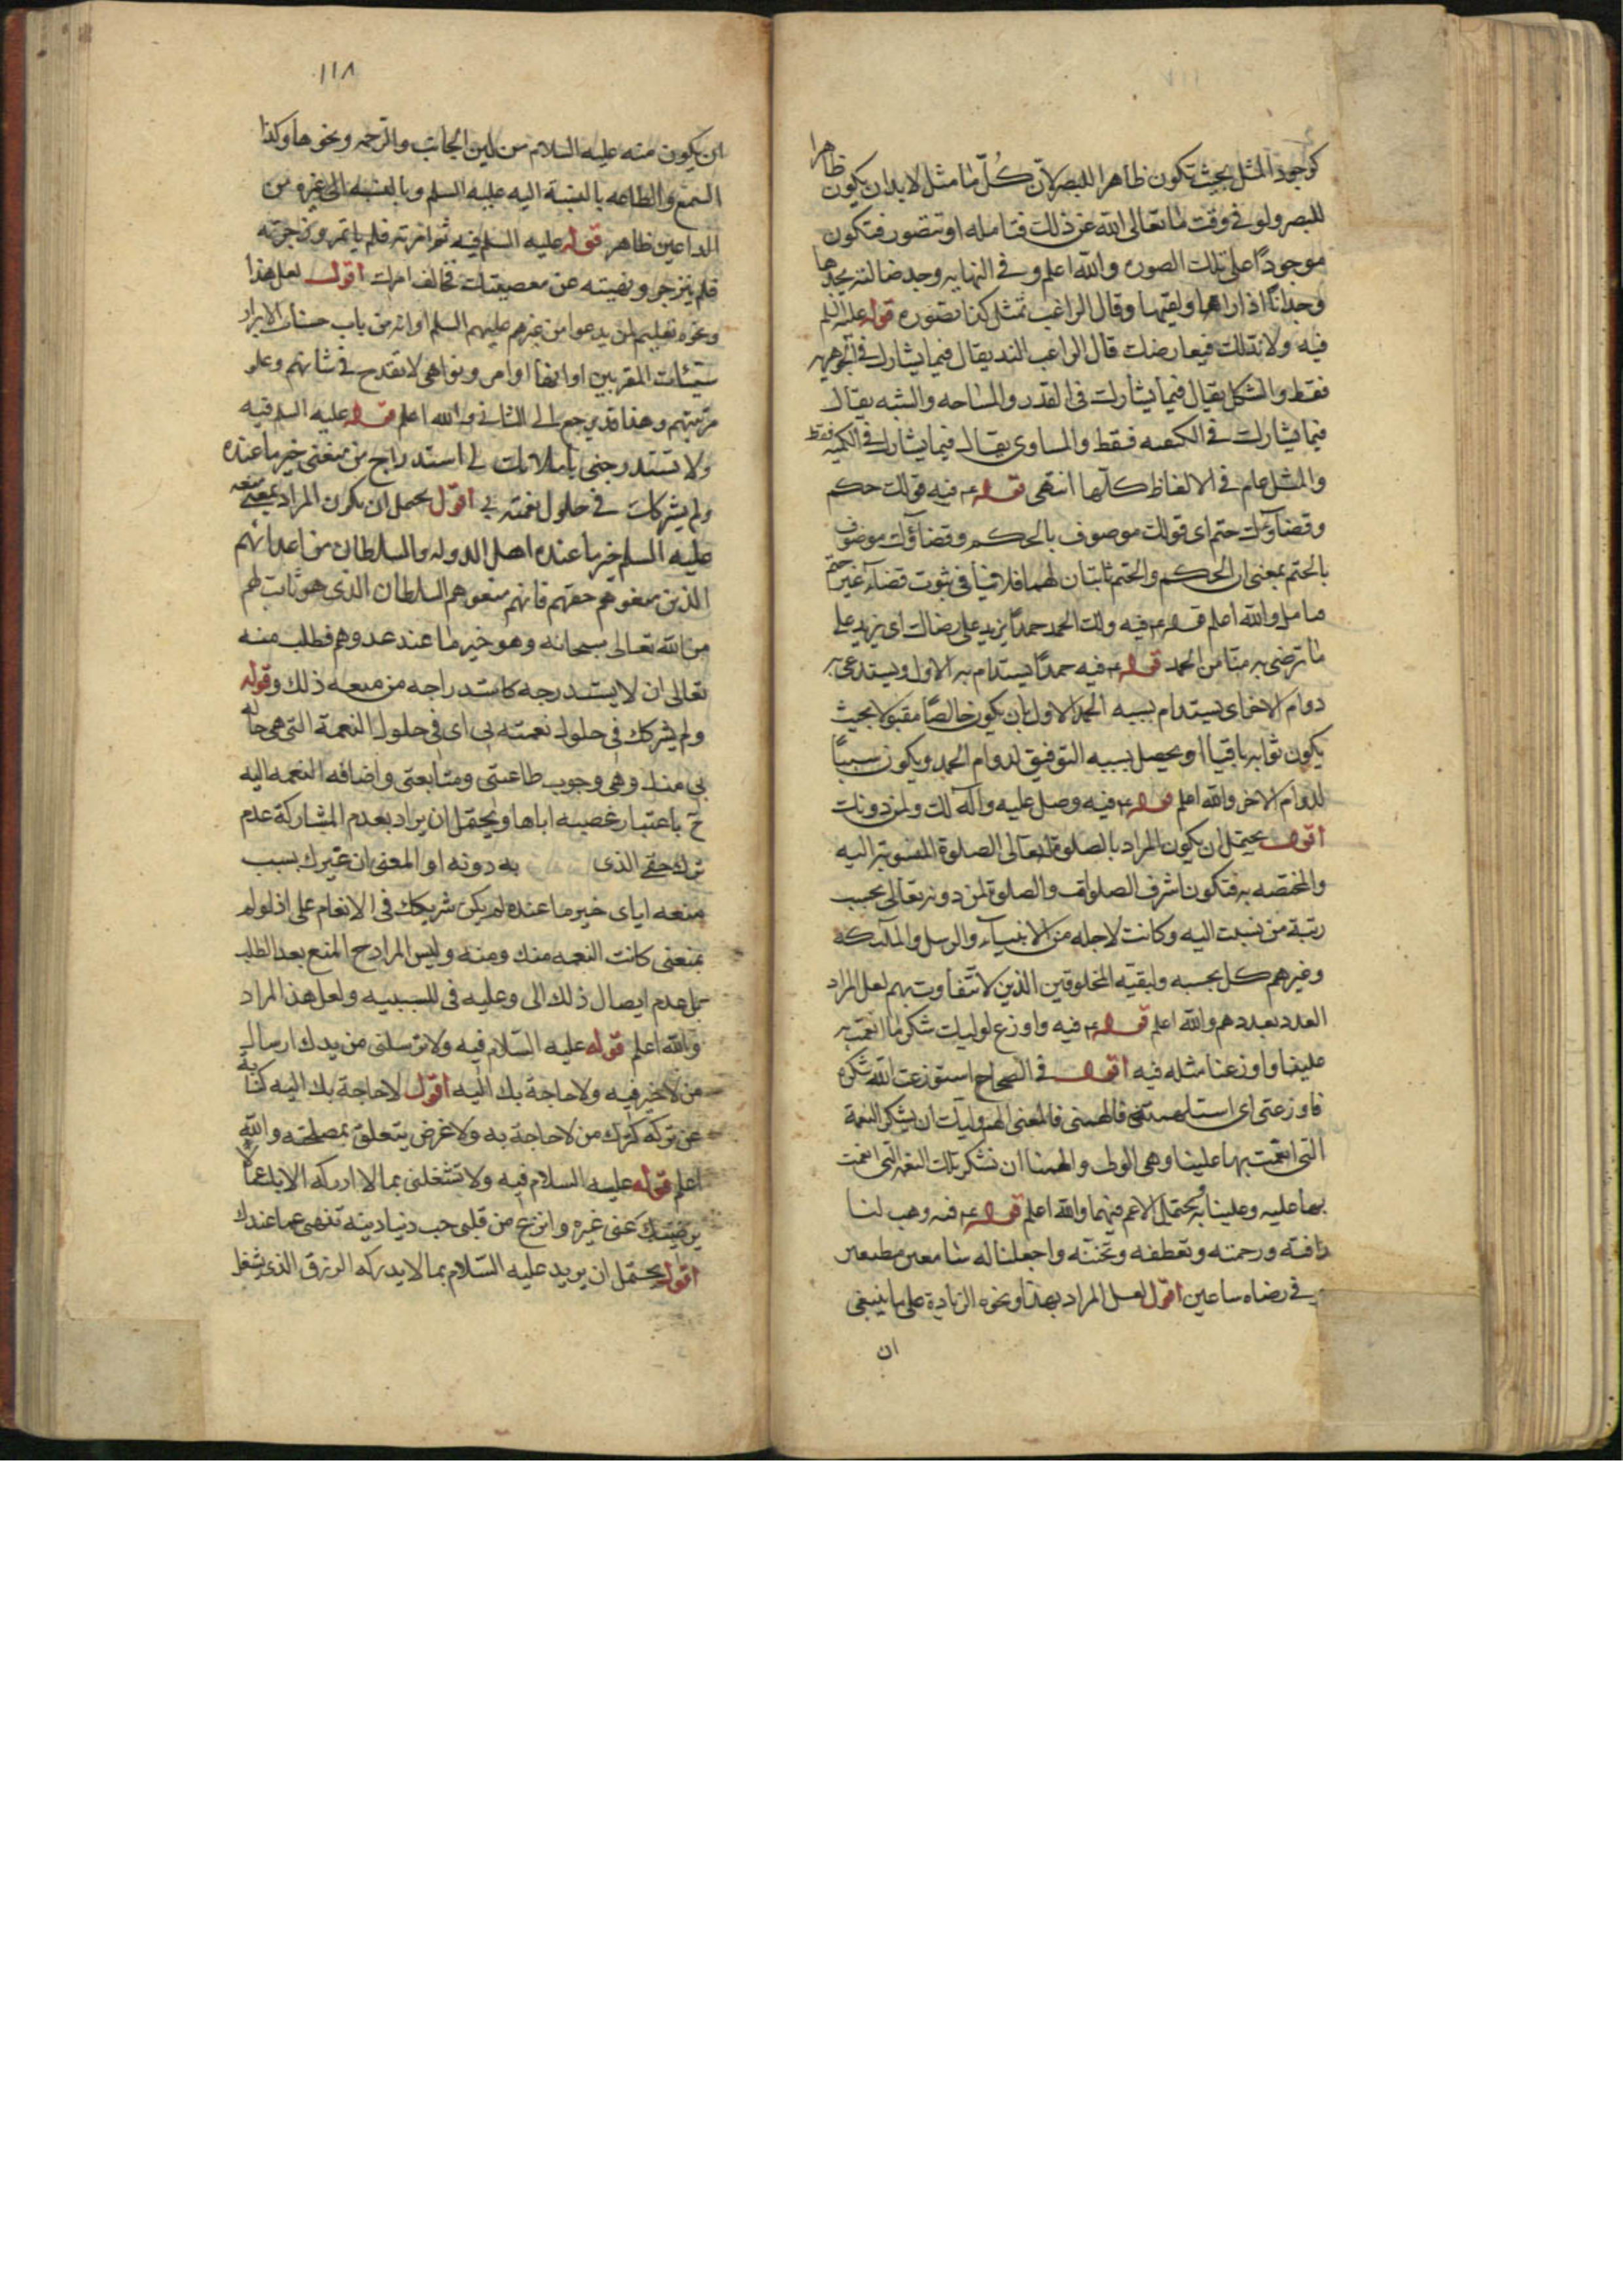 كوجود المثل بحيث تكون ظاهرا للبصر لان كل ما مثل لا بد ان يكون ظاهرا
للبصر ولو في وقت ما تعالى الله عن ذلك فتامله او تتصور فتكون
موجودا على تلك الصورة والله اعلم وفي النهايه وجد ضالته يجدها
وجدانا اذا راها ولقيها وقال الراغب تمثل كذا تصوره قوله عليه السلم
فيه ولا ند لك فيعارضك قال الراغب الند يقال فيما يشارك في الجوهريه
فقط والشكل يقال فيما يشارك في القدر والمساحه والشبه يقال
فيما يشارك في الكيفيه فقط والمساوى يقال فيما يشارك في الكميه فقط
والمثل عام في الالفاظ كلها انتهى قوله ع فيه قولك حكم
وقضاؤك حتم اى قولك موصوف بالحكم وقضاؤك موصوف
بالحتم بمعنى ان الحكم والحتم ثابتان لهما فلا ينافى ثبوت قضاء غير حتم
تامل والله اعلم قوله ع فيه ولك الحمد حمدا يزيد على رضاك اى يزيد على
ما ترضى به منا من الحمد قوله ع فيه حمدا يستدام به الاول ويستدعى به
دوام الاخر اى يستدام بسببه الحمد الاول بان يكون خالصا مقبولا بحيث
يكون ثوابه باقيا او يحصل بسببه التوفيق لدوام الحمد ويكون سببا
لدوام الاخر والله اعلم قوله ع فيه وصل عليه وآله لك ولمن دونك
اقول يحتمل ان يكون المراد بالصلوة له تعالى الصلوة المنسوبة اليه
والمختصه به فتكون اشرف الصلوات والصلوة لمن دونه تعالى بحسب
رتبة من نسبت اليه وكانت لاجله من الانبياء والرسل والملائكه
وغيرهم كل بحسبه ولبقيه المخلوقين الذين لا تتفاوت بهم لعل المراد
العدد بعددهم والله اعلم قوله ع فيه واوزع لوليك شكر ما انعمت به
علينا واوزعنا مثله فيه اقول في الصحاح استوزعت الله شكره
فاوزعنى اى استلهمته فالهمنى فالمعنى الهم وليك ان يشكر النعمة
التى انعمت بها علينا وهى الولى والهمنا ان نشكر تلك النعمه التى انعمت
بها عليه وعلينا به ويحتمل الاعم فيهما والله اعلم قوله ع فيه وهب لنا
رافته ورحمته وتعطفه وتحننه واجعلنا له سامعين مطيعين
وفي رضاه ساعين اقول لعل المراد بهذا ونحوه الزيادة على ما ينبغى
ان
١١٨
ان يكون منه عليه السلام من لين الجانب والترحم ونحوها وكذا
السمع والطاعه بالنسبة اليه عليه السلم وبالنسبه الى غيره من
الداعين ظاهر قوله عليه السلم فيه ثم امرته فلم ياتمر وزجرته
فلم ينزجر ونهيته عن معصيتك فخالف امرك اقول لعل هذا
ونحوه تعليم لمن يدعوا من غيرهم عليهم السلم او انه من باب حسنات الابرار
سيئات المقربين او انها اوامر ونواهى لا تقدح في شانهم وعلو
مرتبتهم وهذا قد يرجع الى الثانى والله اعلم قوله عليه السلم فيه
ولا تستدرجنى باملائك لى استدراج من منعنى خير ما عنده
ولم يشركك في حلول نعمته بى اقول يحتمل ان يكون المراد بمن منعه
عليه السلم خير ما عنده اهل الدوله والسلطان من اعدائهم
الذين منعوهم حقهم فانهم منعوهم السلطان الذى هو ثابت لهم
من الله تعالى سبحانه وهو خير ما عند عدوهم فطلب منه
تعالى ان لا يستدرجه كاستدراجه من منعه ذلك وقوله
ولم يشركك في حلول نعمته بى اى في حلول النعمة التى هى حاله
بى منك وهى وجوب طاعتى ومتابعتى واضافه النعمه اليه
ح باعتبار غصبه اياها ويحتمل ان يراد بعدم المشاركة عدم
ترك حقى الذى به دونه او المعنى ان غيرك بسبب
منعه اياى خير ما عنده لم يكن شريكك في الانعام على اذ لو لم
يمنعنى كانت النعمه منك ومنه وليس المراد ح المنع بعد الطلب
بل عدم ايصال ذلك الى وعليه في للسببيه ولعل هذا المراد
والله اعلم قوله عليه السلام فيه ولا ترسلنى من يدك ارسال
من لا خير فيه ولا حاجة بك اليه اقول لا حاجة بك اليه كناية
عن تركه كترك من لا حاجة به ولا غرض يتعلق بمصلحته والله
اعلم قوله عليه السلام فيه ولا تشغلنى بما لا ادركه الا بك عما
يرضيك عنى غيره وانزع من قلبى حب دنيا دنيه تنهى عما عندك
اقول يحتمل ان يريد عليه السلام بما لا يدركه الرزق الذى يشغل